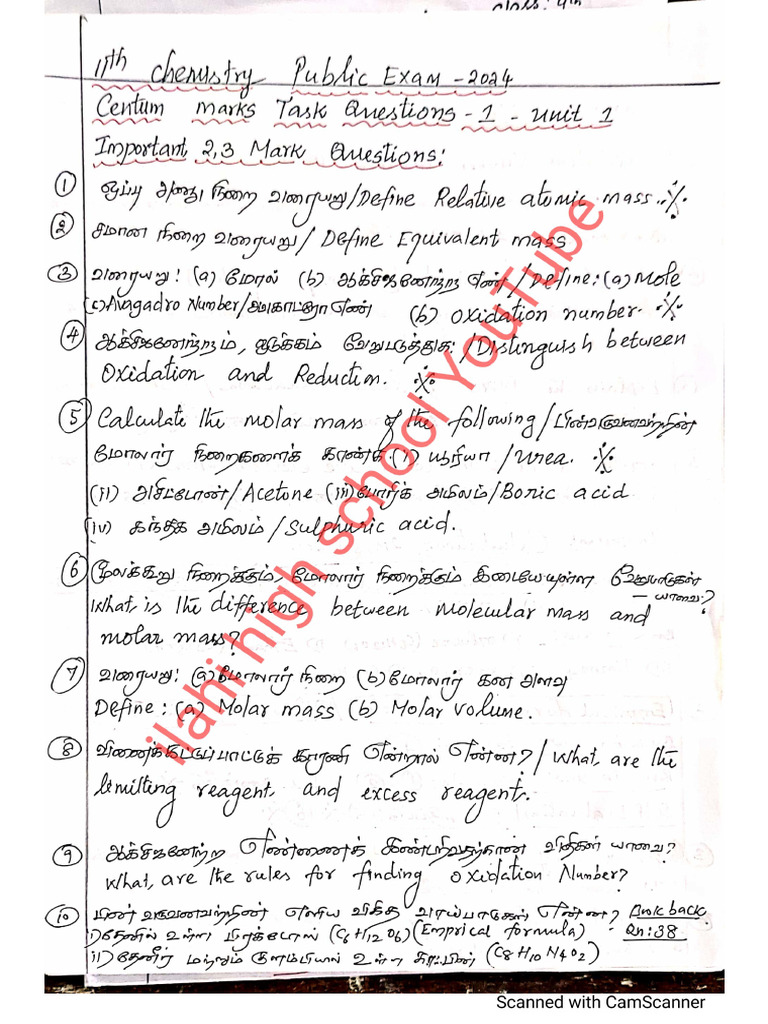 class: 11th
11th Chemistry Public Exam - 2024
Centum marks Task Questions - 1 - unit 1
Important 2,3 Mark Questions:
① ஒப்பு அணு நிறை வரையறு/Define Relative atomic mass.
② சமான நிறை வரையறு/ Define Equivalent mass
③ வரையறு: (a) மோல் (b) ஆக்சிஜனேற்ற எண் /Define: (a) Mole
(c) Avagadro Number/அவகாட்ரோ எண் (b) oxidation number.
④ ஆக்சிஜனேற்றம், ஒடுக்கம் வேறுபடுத்துக: /Distinguish between
Oxidation and Reduction.
⑤ Calculate the molar mass of the following/பின்வருவனவற்றின்
மோலார் நிறைகளைக் காண்க. (i) யூரியா /Urea.
(ii) அசிட்டோன்/Acetone (iii) போரிக் அமிலம்/Boric acid
(iv) கந்தக அமிலம்/Sulphuric acid.
⑥ மூலக்கூறு நிறைக்கும், மோலார் நிறைக்கும் இடையேயுள்ள வேறுபாடுகள்
யாவை?
What is the difference between molecular mass and
molar mass?
⑦ வரையறு: (a) மோலார் நிறை (b) மோலார் கன அளவு
Define: (a) Molar mass (b) Molar volume.
⑧ வினைக்கட்டுப்பாட்டுக் காரணி என்றால் என்ன? / What are the
limitting reagent and excess reagent.
⑨ ஆக்சிஜனேற்ற எண்ணைக் கண்டறிவதற்கான விதிகள் யாவை?
What are the rules for finding oxidation Number?
⑩ பின்வருவனவற்றின் எளிய விகித வாய்பாடுகள் என்ன? Book back
i) தேனில் உள்ள பிரக்டோஸ் (C6H12O6) (Emprical formula) Qn:38
ii) தேனீர் மற்றும் குளம்பியில் உள்ள காஃபின் (C8H10N4O2)
ilahi high school YouTube
Scanned with CamScanner